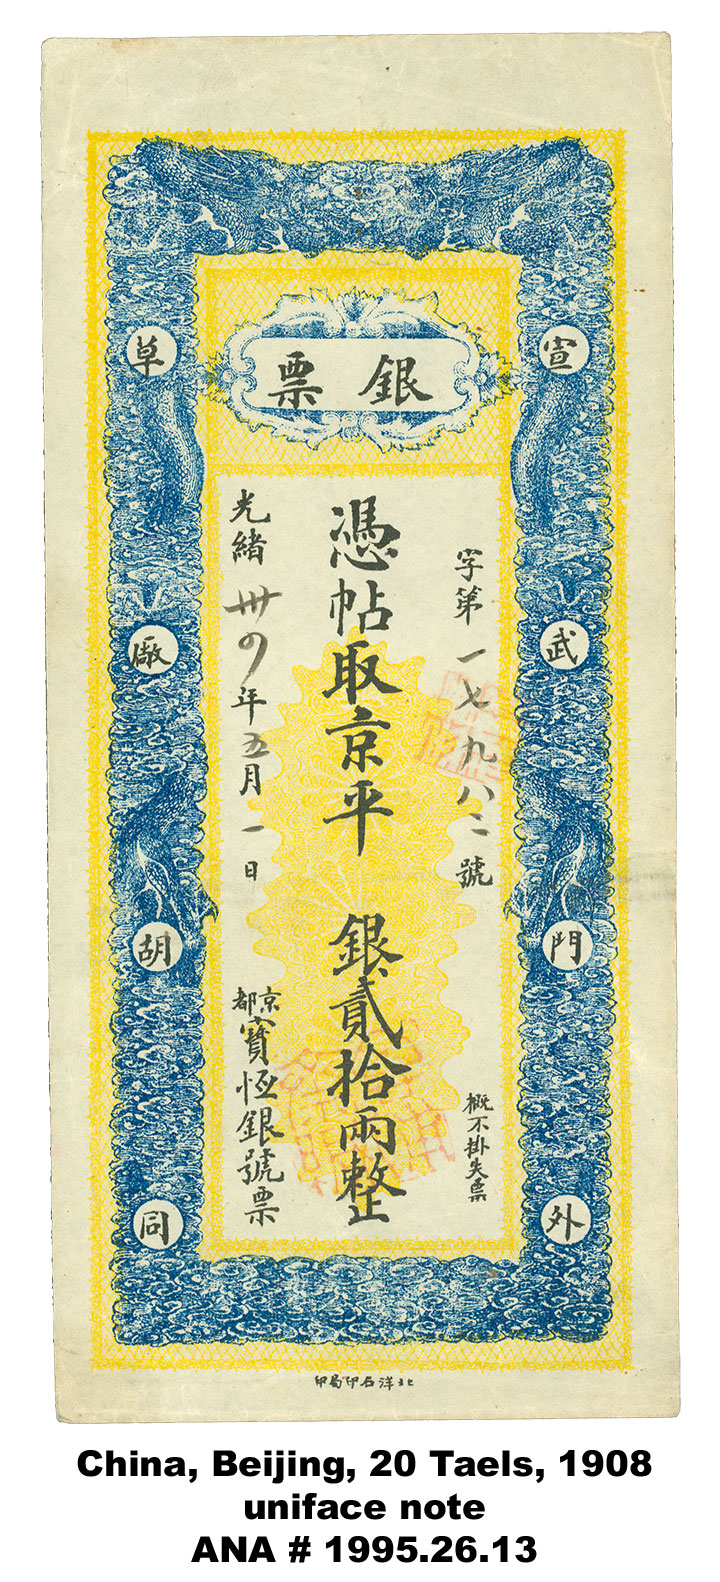 銀票
宣武門外
草廠胡同
字第一七九八二號
概不掛失票
憑帖取京平 銀貳拾兩整
光緒卅四年五月一日
京都寶恆銀號票
北洋石印局印
China, Beijing, 20 Taels, 1908
uniface note
ANA # 1995.26.13